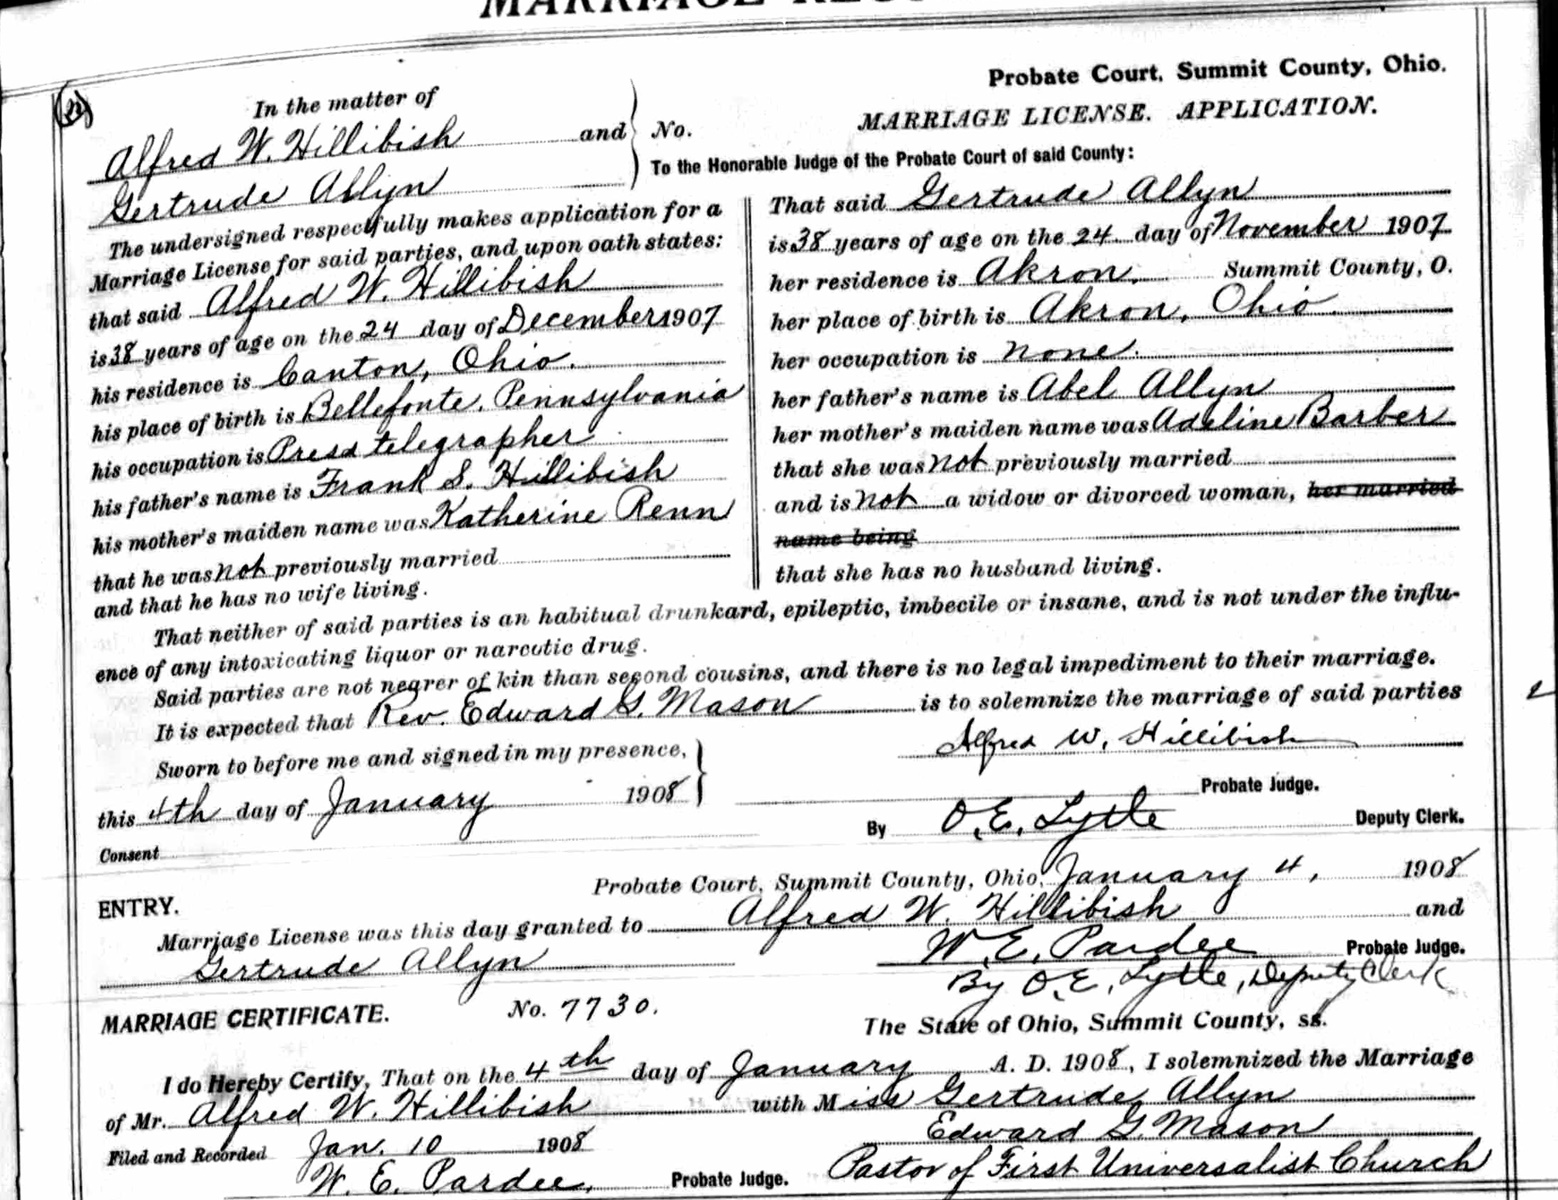 MARRIAGE
Probate Court, Summit County, Ohio.
In the matter of
Alfred W. Hillibish and
Gertrude Allyn
No.
MARRIAGE LICENSE. APPLICATION.
To the Honorable Judge of the Probate Court of said County:
The undersigned respectfully makes application for a
Marriage License for said parties, and upon oath states:
that said Alfred W. Hillibish
is 38 years of age on the 24 day of December 1907
his residence is Canton, Ohio.
his place of birth is Bellefonte, Pennsylvania
his occupation is Press telegrapher
his father's name is Frank S. Hillibish
his mother's maiden name was Katherine Renn
that he was not previously married
and that he has no wife living.
That said Gertrude Allyn
is 38 years of age on the 24. day of November 1907.
her residence is Akron, Summit County, O.
her place of birth is Akron, Ohio.
her occupation is none.
her father's name is Abel Allyn
her mother's maiden name was Adeline Barber
that she was not previously married
and is not a widow or divorced woman, her married
name being
that she has no husband living.
That neither of said parties is an habitual drunkard, epileptic, imbecile or insane, and is not under the influ-
ence of any intoxicating liquor or narcotic drug.
Said parties are not nearer of kin than second cousins, and there is no legal impediment to their marriage.
It is expected that Rev. Edward G. Mason is to solemnize the marriage of said parties
Sworn to before me and signed in my presence,
Alfred W. Hillibish
this 4th day of January 1908
Probate Judge.
By O. E. Lytle Deputy Clerk.
Consent
ENTRY.
Probate Court, Summit County, Ohio, January 4, 1908
Marriage License was this day granted to Alfred W. Hillibish and
Gertrude Allyn
W. E. Pardee Probate Judge.
By O. E. Lytle, Deputy Clerk
MARRIAGE CERTIFICATE. No. 7730.
The State of Ohio, Summit County, ss.
I do Hereby Certify, That on the 4th day of January A. D. 1908, I solemnized the Marriage
of Mr. Alfred W. Hillibish with Miss Gertrude Allyn
Edward G. Mason
Filed and Recorded Jan. 10 1908
Pastor of First Universalist Church
W. E. Pardee, Probate Judge.